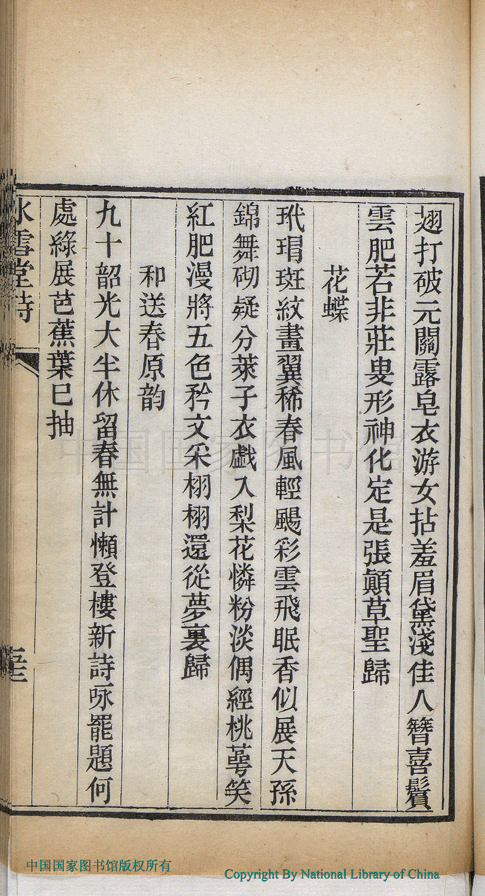 翅打破元關露皂衣游女拈羞眉黛淺佳人簪喜鬢
雲肥若非莊叟形神化定是張顛草聖歸
花蝶
玳瑁斑紋畫翼稀春風輕颺彩雲飛眠香似展天孫
錦舞砌疑分萊子衣戲入梨花憐粉淡偶經桃萼笑
紅肥漫將五色矜文采栩栩還從夢裏歸
和送春原韵
九十韶光大半休留春無計懶登樓新詩咏罷題何
處綠展芭蕉葉已抽
冰雪堂詩
中国国家图书馆
中国国家图书馆版权所有
Copyright By National Library of China